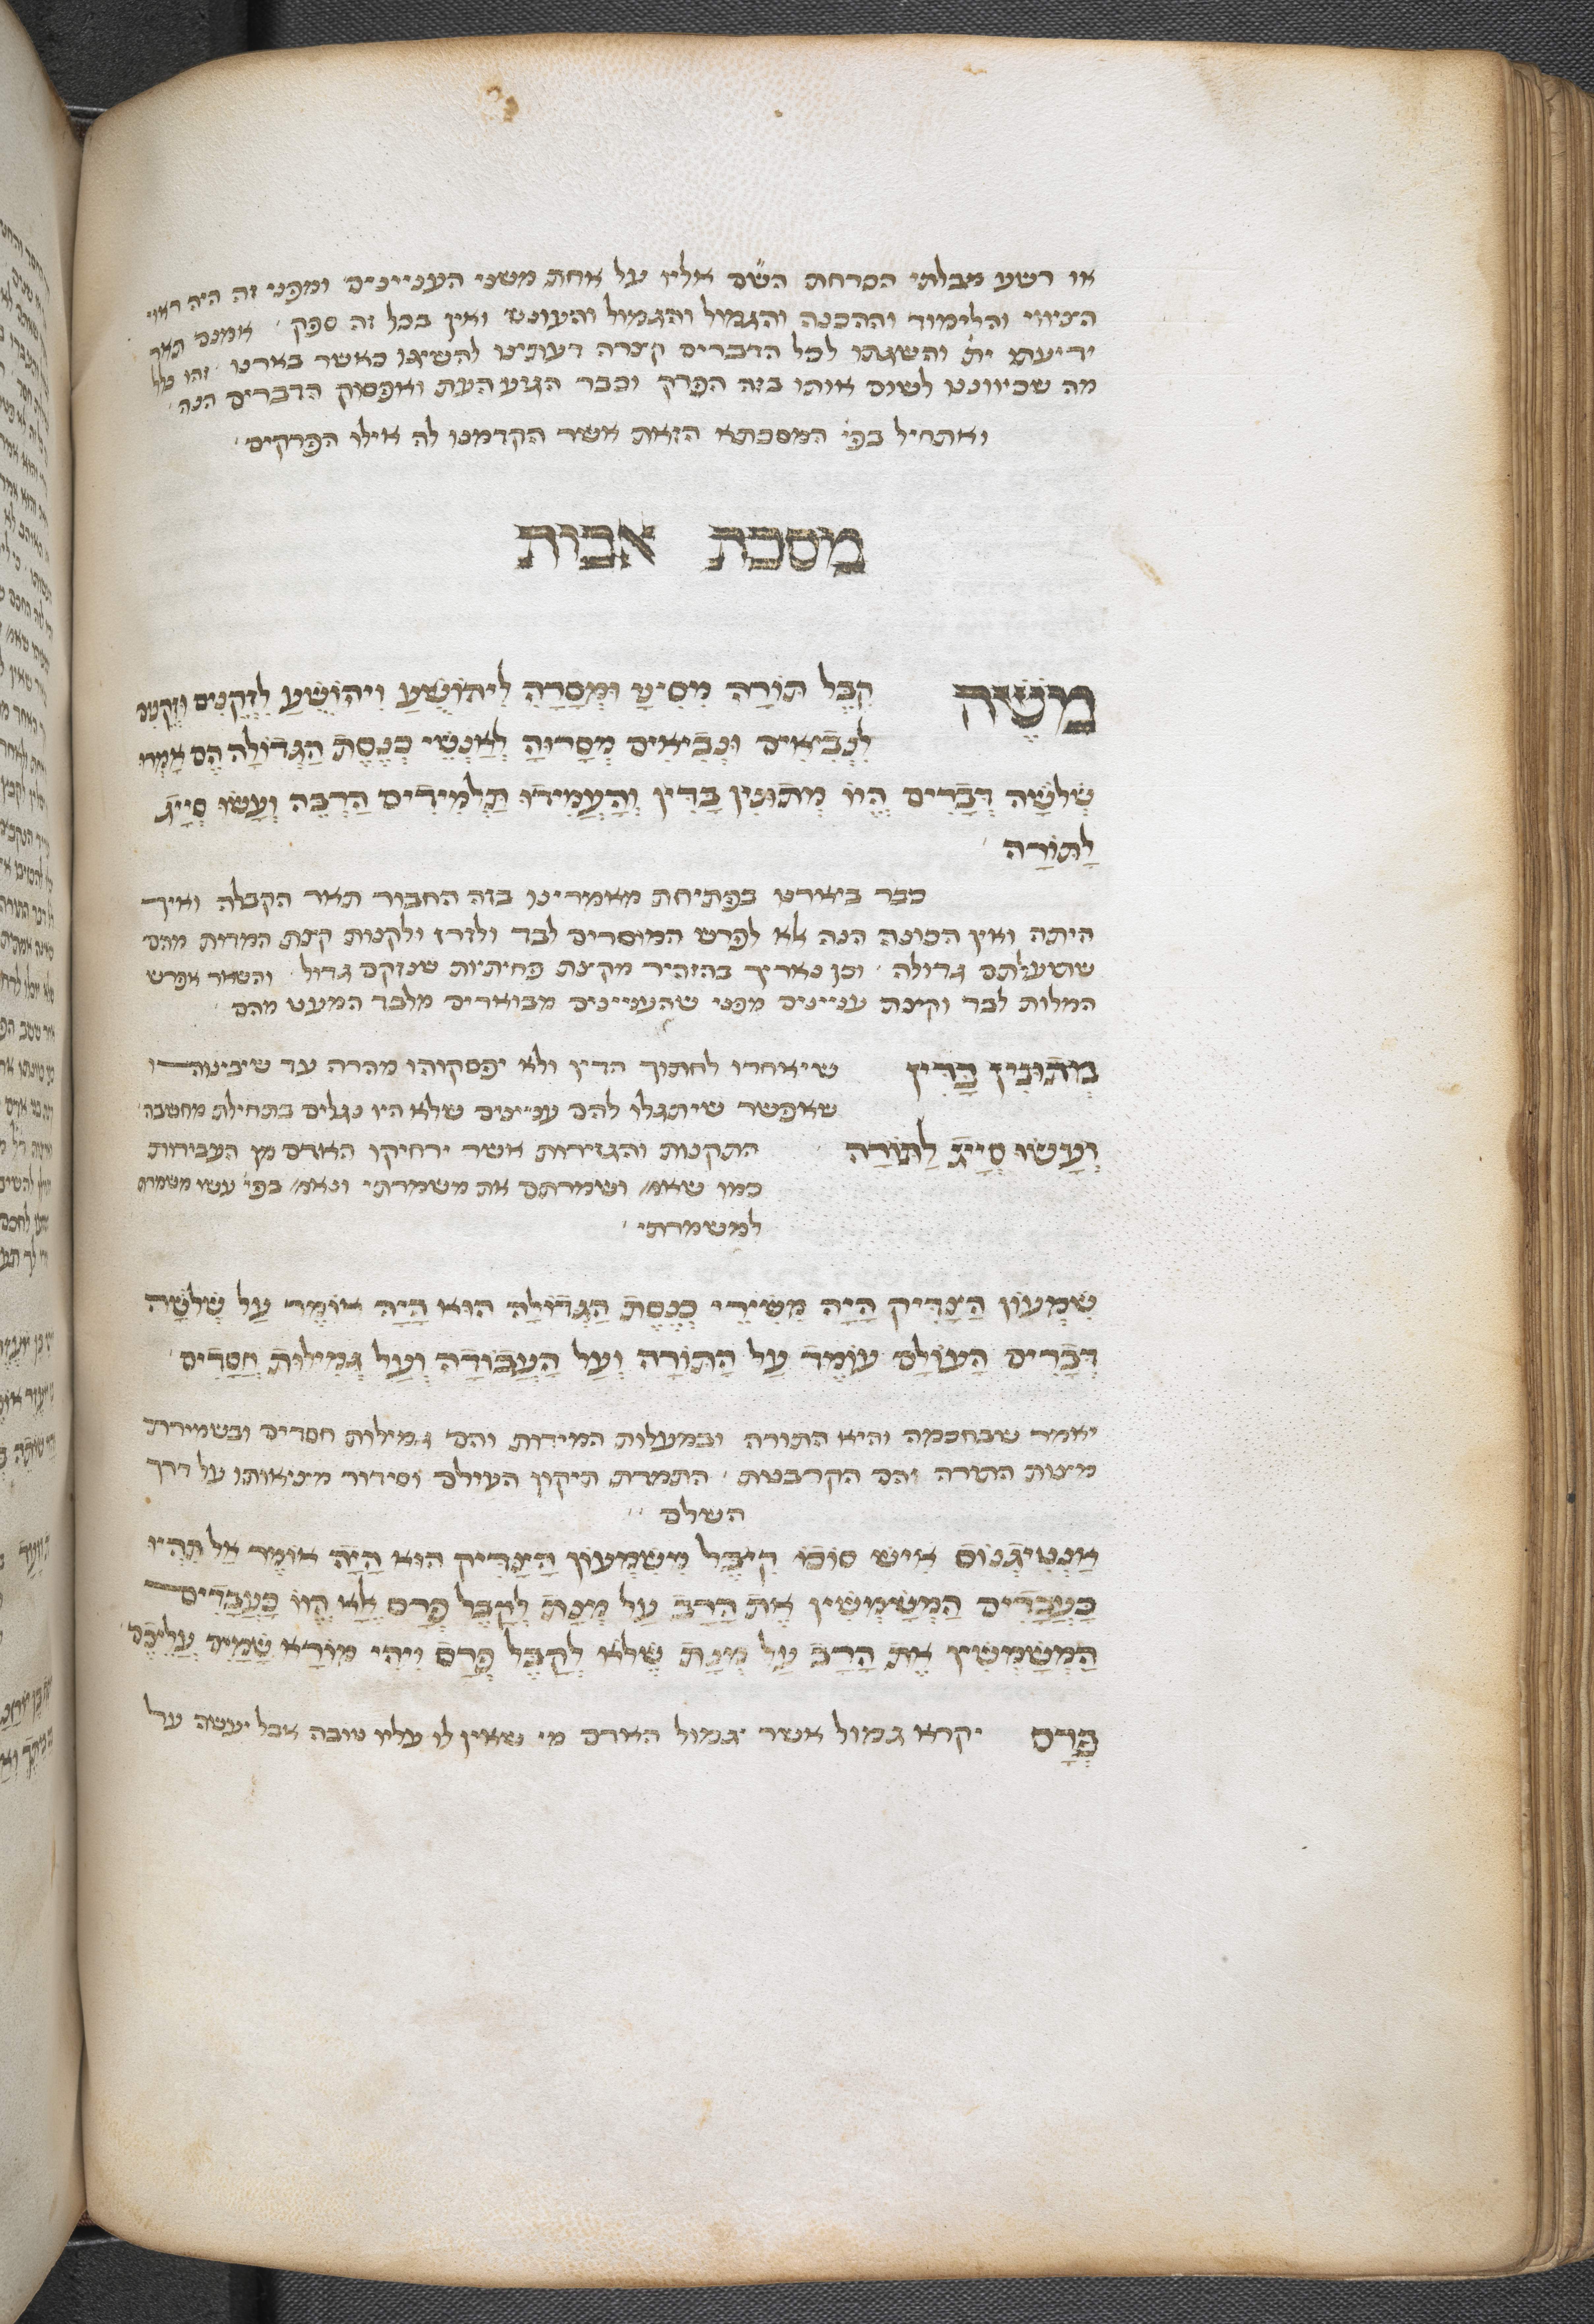 או רשע מבלתי הכרחת השֹם אליו על אחת משני העניינים ומפני זה היה ראוי
הציווי והלימוד וההכנה והגמול והגמול והעונש ואין בכל זה ספק אמנם תאר
ידיעתו יתֹ והשגתו לכל הדברים קצרה דעתינו להשיגו כאשר בארנו זהו כל
מה שכיווננו לשום אותו בזה הפרק וכבר הגיע העת ואפסוק הדברים הנה
ואתחיל בפיֹ המסכתא הזאת אשר הקדמנו לה אילו הפרקים
מסכת אבות
מֹשֶׁה קִבֵּל תּוֹרָה מִסִינַי וּמְסָרָהּ לִיהוֹשֻׁעַ וִיהוֹשֻׁעַ לִזְקֵנִים וּזְקֵנִים
לִנְבִיאִים וּנְבִיאִים מְסָרוּהָ לְאַנְשֵׁי כְנֶסֶת הַגְּדוֹלָה הֵם אָמְרוּ
שְׁלֹשָׁה דְבָרִים הֱווּ מְתוּנִין בַּדִּין וְהַעֲמִידוּ תַּלְמִידִים הַרְבֵּה וַעֲשׂוּ סְיָיג
לַתּוֹרָה
כבר ביארנו בפתיחת מאמרינו בזה החבור תאר הקבלה ואיך
היתה ואין הכונה הנה אלא לפרש המוסרים לבד ולזרז ולקנות קצת המדות מהם
שתועלתם גדולה וכן נאריך בהזהיר מקצת פחיתיות שנזקם גדול והשאר אפרש
המלות לבד וקצת עניינים מפני שהעניינים מבוארים מלבד המעט מהם
מְתוּנִין בַּדִּין שיאחרו לחתוך הדין ולא יפסקוהו מהרה עד שיבינוהו
שאפשר שיתגלו להם עניינים שלא היו נגלים בתחילת מחשבה
וַעֲשׂוּ סְיָיג לַתּוֹרָה התקנות והגזירות אשר ירחיקו האדם מן העבירות
כמו שאמ' ושמרתם את משמרתי ונאמ' בפיֹ עשו משמרת
למשמרתי
שִׁמְעוֹן הַצַּדִּיק הָיָה מִשְּׁיָרֵי כְנֶסֶת הַגְּדוֹלָה הוּא הָיָה אוֹמֵר עַל שְׁלֹשָׁה
דְּבָרִים הָעוֹלָם עוֹמֵד עַל הַתּוֹרָה וְעַל הָעֲבוֹדָה וְעַל גְּמִילוּת חֲסָדִים
יאמר שבחכמה והיא התורה ובמעלות המידות והם גמילות חסדים ובשמירת
מצות התורה והם הקרבנות התמדת תיקון העולם וסידור מציאותו על דרך
השלם
אַנְטִיגְנוֹס אִישׁ סוֹכוֹ קִיבֵּל מִשִּׁמְעוֹן הַצַּדִּיק הוּא הָיָה אוֹמֵר אַל תִּהְיוּ
כַּעֲבָדִים הַמְשַׁמְּשִׁין אֶת הָרַב עַל מְנָת לְקַבֵּל פְּרָס אֶלָּא הֱווּ כַּעֲבָדִים
הַמְשַׁמְּשִׁין אֶת הָרַב עַל מְנָת שֶׁלֹּא לְקַבֵּל פְּרָס וִיהִי מוֹרָא שָׁמַיִם עֲלֵיכֶם
פְּרָס יקרא גמול אשר יגמול האדם מי שאין לו עליו טובה אבל יעשה על